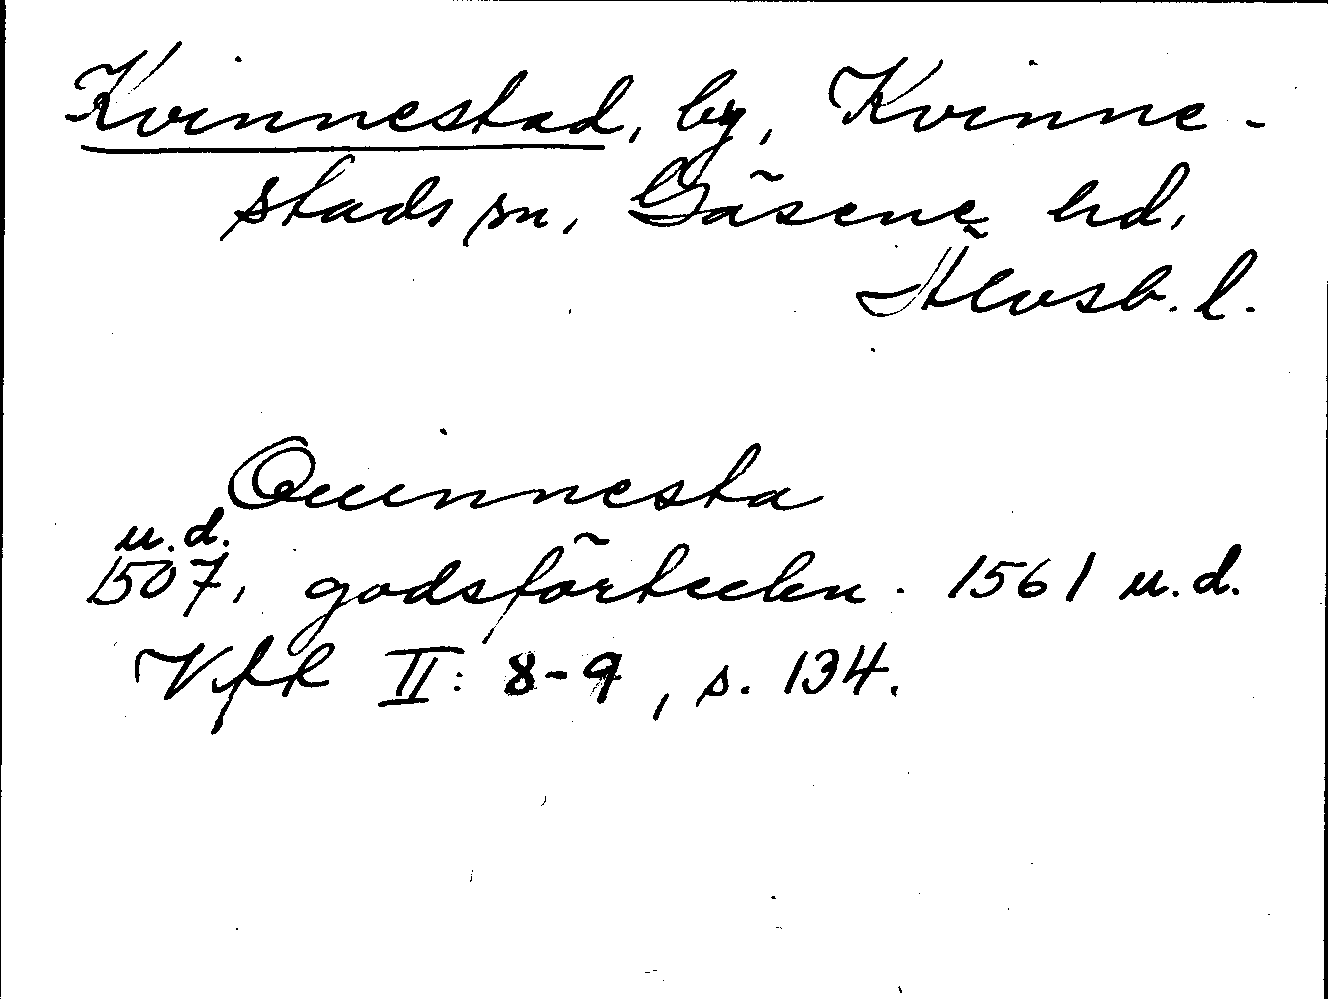 Kvinnestad, by, Kvinne-
stads sn, Gäsene hd,
Älvsb. l.
Quinnesta
u.d.
1507, godsförteckn. 1561 u.d.
Vfk II: 8-9, s. 134.